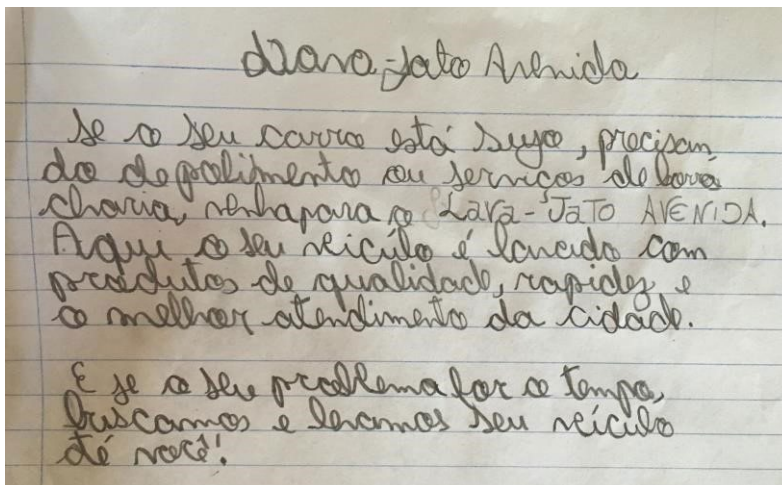 Lava-Jato Avenida
Se o seu carro está sujo, precisan
do de polimento ou serviços de borra
charia, venha para o Lava-Jato AVENIDA.
Aqui o seu veicúlo é lavado com
produtos de qualidade, rapidez e
o melhor atendimento da cidade.
E se o seu problema for o tempo,
buscamos e levamos seu veículo
até você!